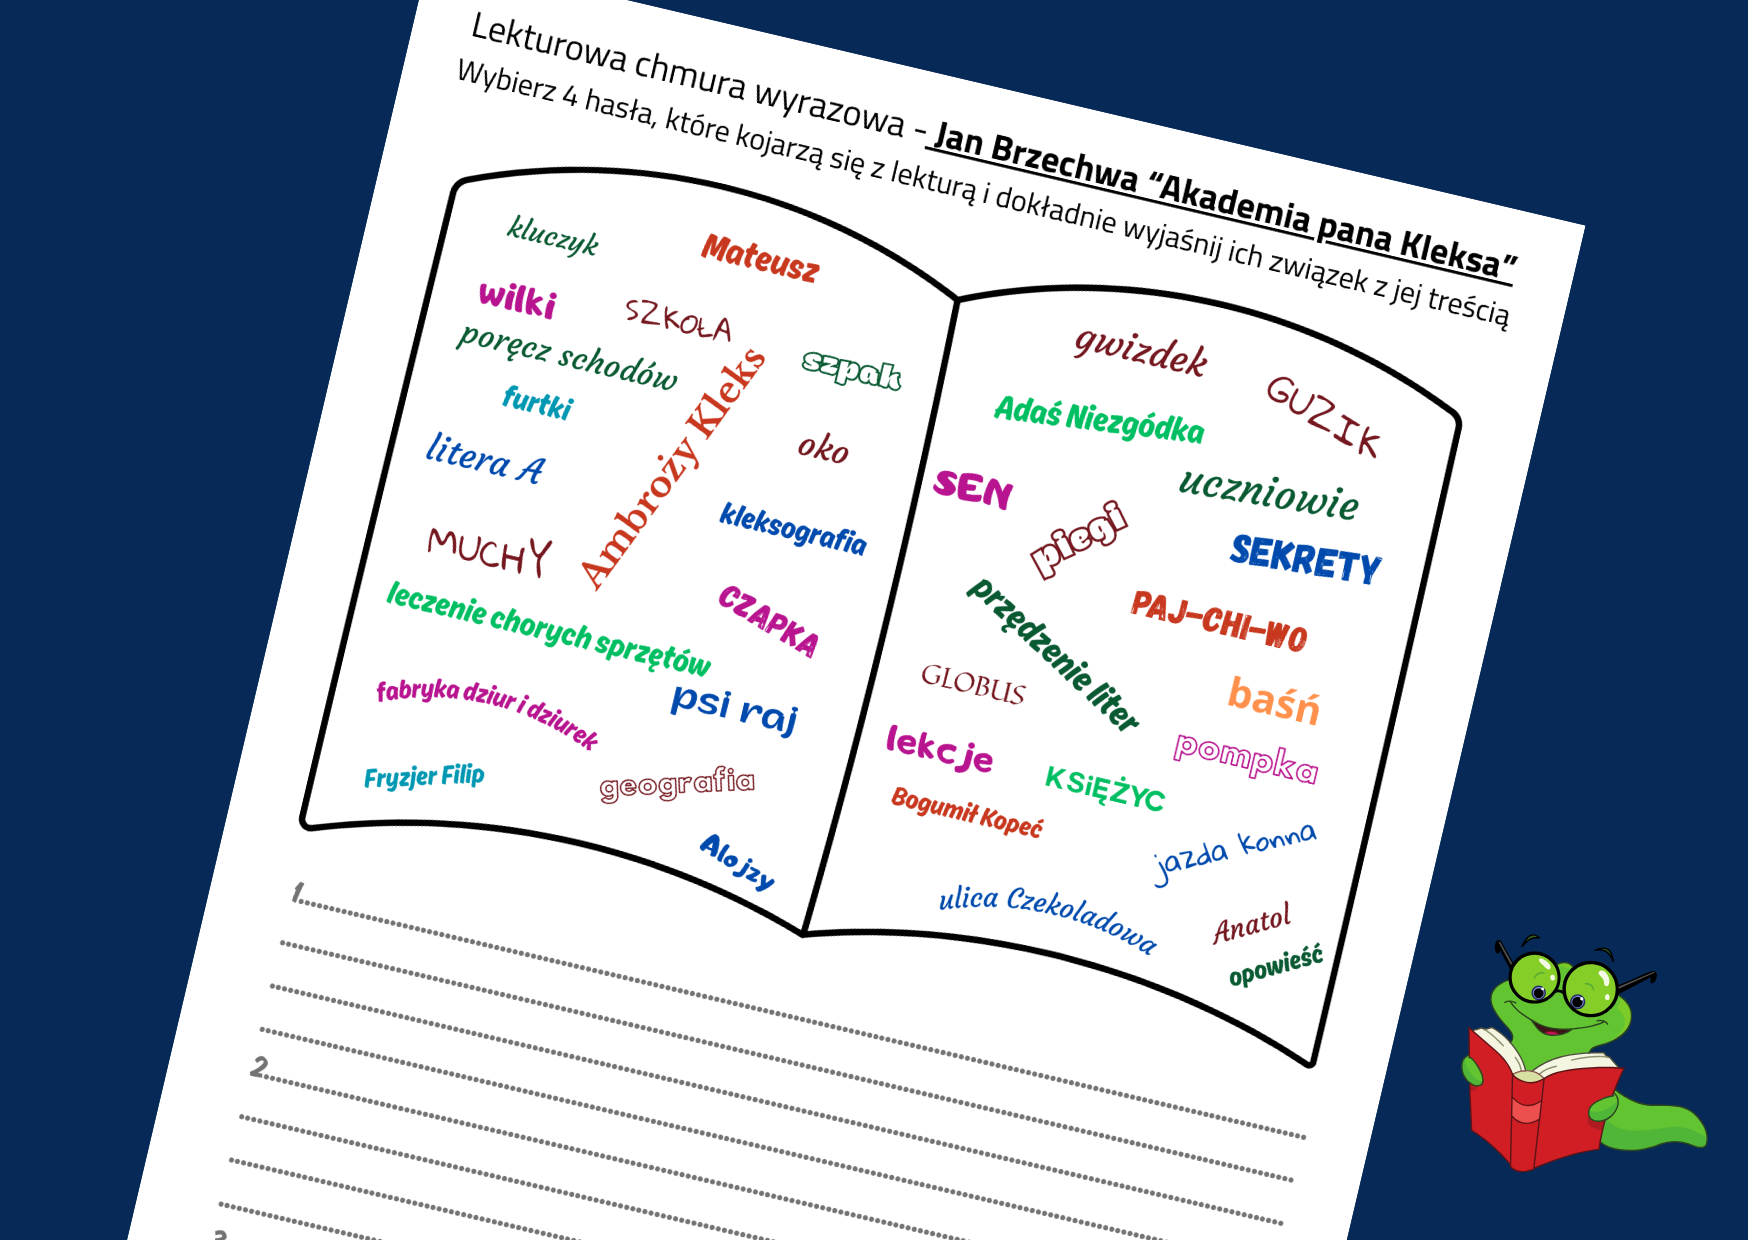 Lekturowa chmura wyrazowa - Jan Brzechwa “Akademia pana Kleksa”
Wybierz 4 hasła, które kojarzą się z lekturą i dokładnie wyjaśnij ich związek z jej treścią
kluczyk
Mateusz
wilki
SZKOŁA
poręcz schodów
szpak
furtki
Ambroży Kleks
oko
litera A
kleksografia
MUCHY
CZAPKA
leczenie chorych sprzętów
psi raj
fabryka dziur i dziurek
Fryzjer Filip
geografia
Alojzy
gwizdek
GUZIK
Adaś Niezgódka
SEN
uczniowie
piegi
SEKRETY
przędzenie liter
PAJ-CHI-WO
GLOBUS
baśń
lekcje
pompka
KSiĘŻYC
Bogumił Kopeć
jazda konna
ulica Czekoladowa
Anatol
opowieść
1.
2.